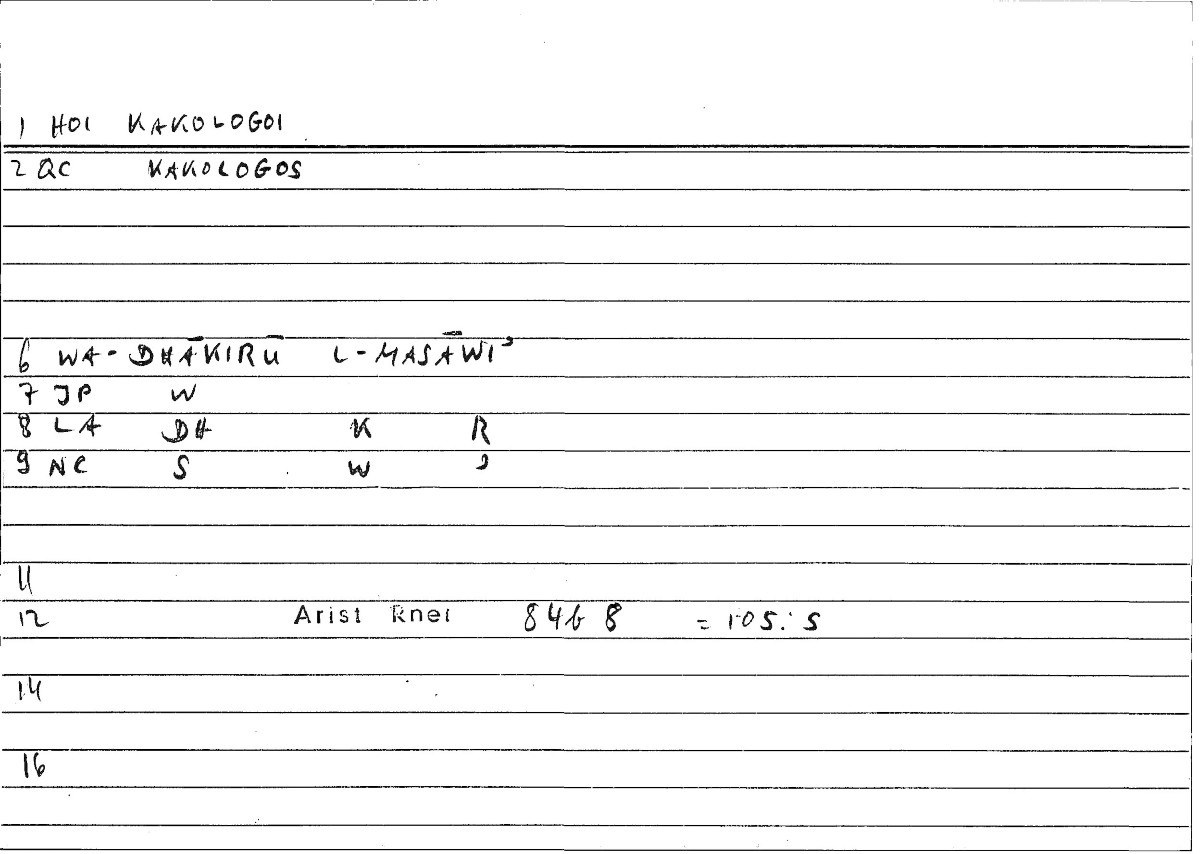 1 HOI KAKOLOGOI
2 QC KAKOLOGOS
6 WA-DHĀKIRŪ L-MASĀWIʾ
7 JP W
8 LA DH K R
9 NC S W ʾ
11
12 Arist Rhet 84b 8 = 105.5
14
16